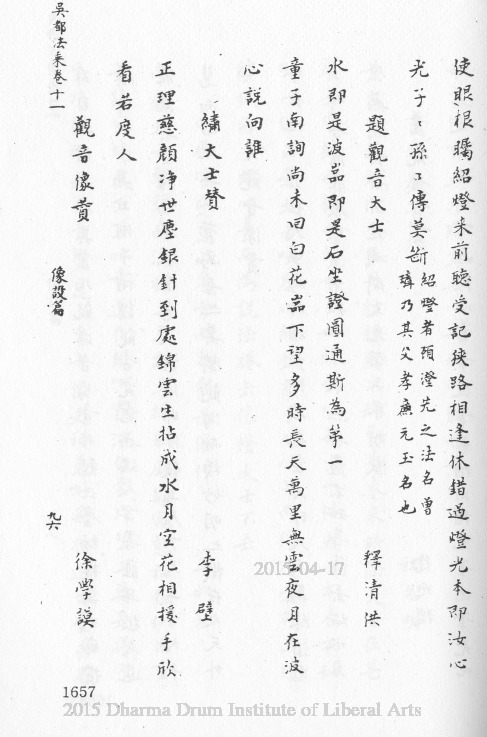 使眼根矚紹燈来前聽受記狹路相逢休錯過燈光本即汝心
光子〻孫〻傳莫斷紹燈者項澄芫之法名曾
璋乃其父孝廉元玉名也
題觀音大士 釋清洪
水即是波嵓即是石坐證圓通斯為第一
童子南詢尚未回白花嵓下望多時長天萬里無雲夜月在波
心説向誰
繡大士賛 李壁
正理慈顔净世塵銀針到處錦雲生拈成水月空花相援手欣
看若度人
觀音像賛 徐學謨
吳都法乘卷十一 像設篇 九六
1657
2015-04-17
2015 Dharma Drum Institute of Liberal Arts